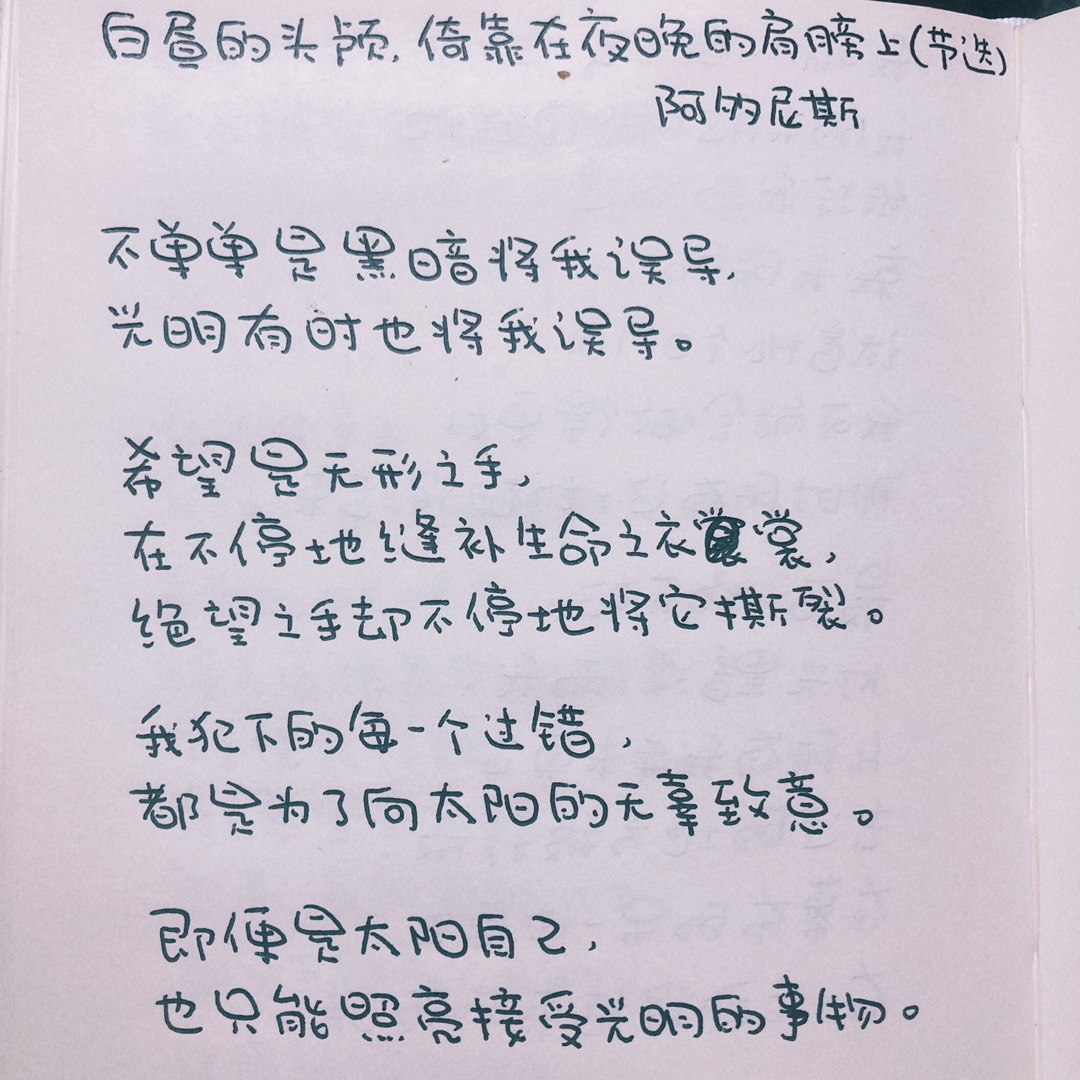 白昼的头颅,倚靠在夜晚的肩膀上(节选)
阿多尼斯
不单单是黑暗将我误导,
光明有时也将我误导。
希望是无形之手,
在不停地缝补生命之衣裳,
绝望之手却不停地将它撕裂。
我犯下的每一个过错,
都是为了向太阳的无辜致意。
即便是太阳自己,
也只能照亮接受光明的事物。